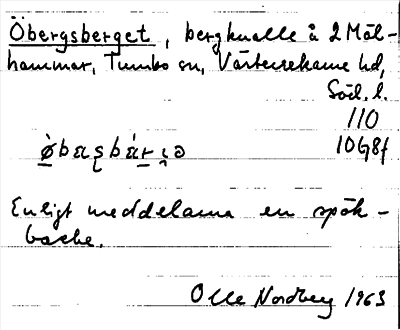 Öbergsberget, bergknalle å 2 Mäl-
hammar, Tumbo sn, Västerrekarne hd,
Söd. l.
110
10G8f
Enligt meddelarna en spök-
backe.
Olle Nordberg 1963